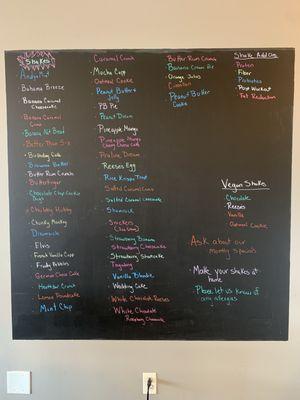 Shakes
Andy's Mint
Bahama Breeze
Banana Caramel
Cheesecake
Banana Caramel
Banana Nut Bread
Better Than S-x
Birthday Cake
Brownie Batter
Butter Rum Crunch
Butterfinger
Chocolate Chip Cookie
Dough
Chubby Hubby
Chunky Monkey
Dreamsicle
Elvis
French Vanilla Capp
Fruity Pebbles
German Choco Cake
Heathbar Crunch
Lemon Poundcake
Mint Chip
Caramel Crunch
Mocha Capp
Oatmeal Cookie
Peanut Butter &
Jelly
PB Pie
Peanut Dream
Pineapple Mango
Pineapple Mango
Praline Dream
Reese's Egg
Rice Krispy Treat
Salted Caramel
Salted Caramel Cheesecake
Shamrock
Snickers
Strawberry Banana
Strawberry Cheesecake
Strawberry Shortcake
Tagalong
Vanilla Blondie
Wedding Cake
White Chocolate Reeses
White Chocolate
Raspberry Cheesecake
Butter Rum Crunch
Banana Cream Pie
Orange Julius
Cinnabon
Peanut Butter
Cookie
Shake Add Ons
Protein
Fiber
Probiotics
Post Workout
Fat Reduction
Vegan Shakes
Chocolate
Reeses
Vanilla
Oatmeal Cookie
Ask about our
monthly specials
Make your shakes at
home
Please let us know if
any allergies